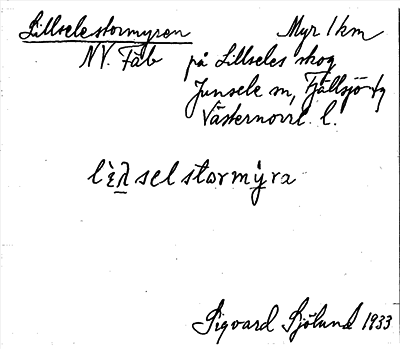 Lillselestormyren Myr 1 km
NV. Fäb på Lillseles skog
Junsele sn, Fjällsjö tg
Västernorrl. l.
Sigvard Sjölund 1933